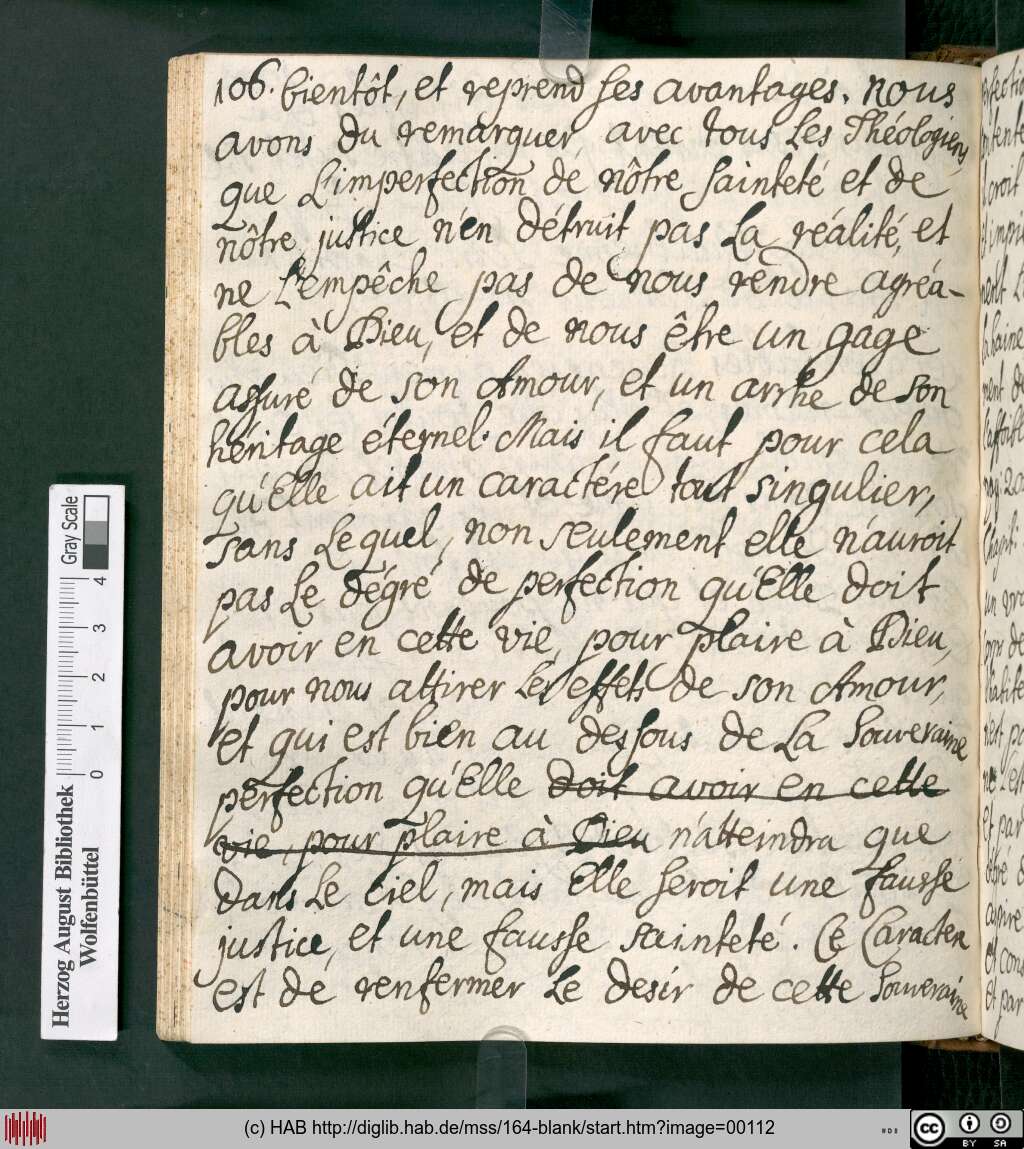 106. bientôt, et reprend ses avantages. nous
avons du remarquer, avec tous Les Théologiens,
que L'imperfection de nôtre sainteté et de
nôtre justice n'en détruit pas La réalité, et
ne L'empêche pas de nous rendre agréa-
bles à Dieu, et de nous être un gage
assuré de son Amour, et un arrhe de son
héritage éternel. Mais il faut pour cela
qu'Elle ait un caractére tout singulier,
sans Lequel, non seulement elle n'auroit
pas Le dégré de perfection qu'Elle doit
avoir en cette vie, pour plaire à Dieu,
pour nous attirer Les effets de son Amour,
et qui est bien au dessous de La Souveraine
perfection qu'Elle doit avoir en cette
vie, pour plaire à Dieu n'atteindra que
dans Le ciel, mais Elle seroit une fausse
justice, et une fausse sainteté. Ce Caracter
est de renfermer Le desir de cette Souveraine
Herzog August Bibliothek
Wolfenbüttel
Gray Scale
0 1 2 3 4
(c) HAB http://diglib.hab.de/mss/164-blank/start.htm?image=00112
cc BY SA